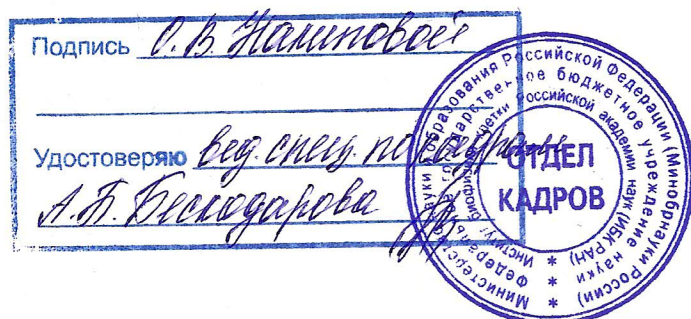 Подпись О. В.
Удостоверяю вед. спец. по кадрам
А. Б.
Министерство науки и образования Российской Федерации (Минобрнауки России)
Федеральное государственное бюджетное учреждение науки
Институт биофизики клетки Российской академии наук (ИБК РАН)
ОТДЕЛ
КАДРОВ